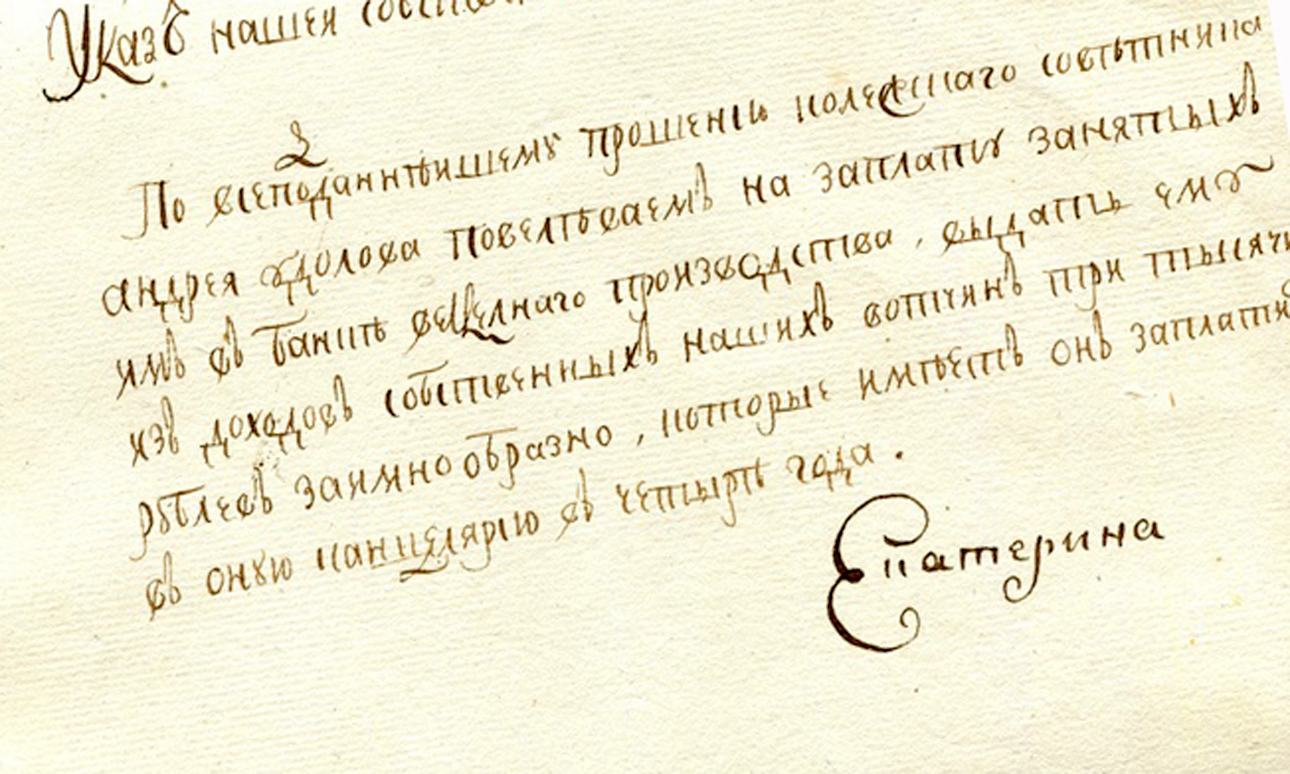 Указъ нашей
По всеподданнѣйшему прошению колежскаго совѣтника
андрея повелѣваемъ на заплату занятыхъ
имъ въ банкѣ вексельнаго производства, выдать ему
изъ доходовъ собственныхъ нашихъ вотчинъ три тысячи
рублевъ заимнообразно, которые имѣетъ онъ
въ оную канцелярию въ четырѣ года.
Екатерина